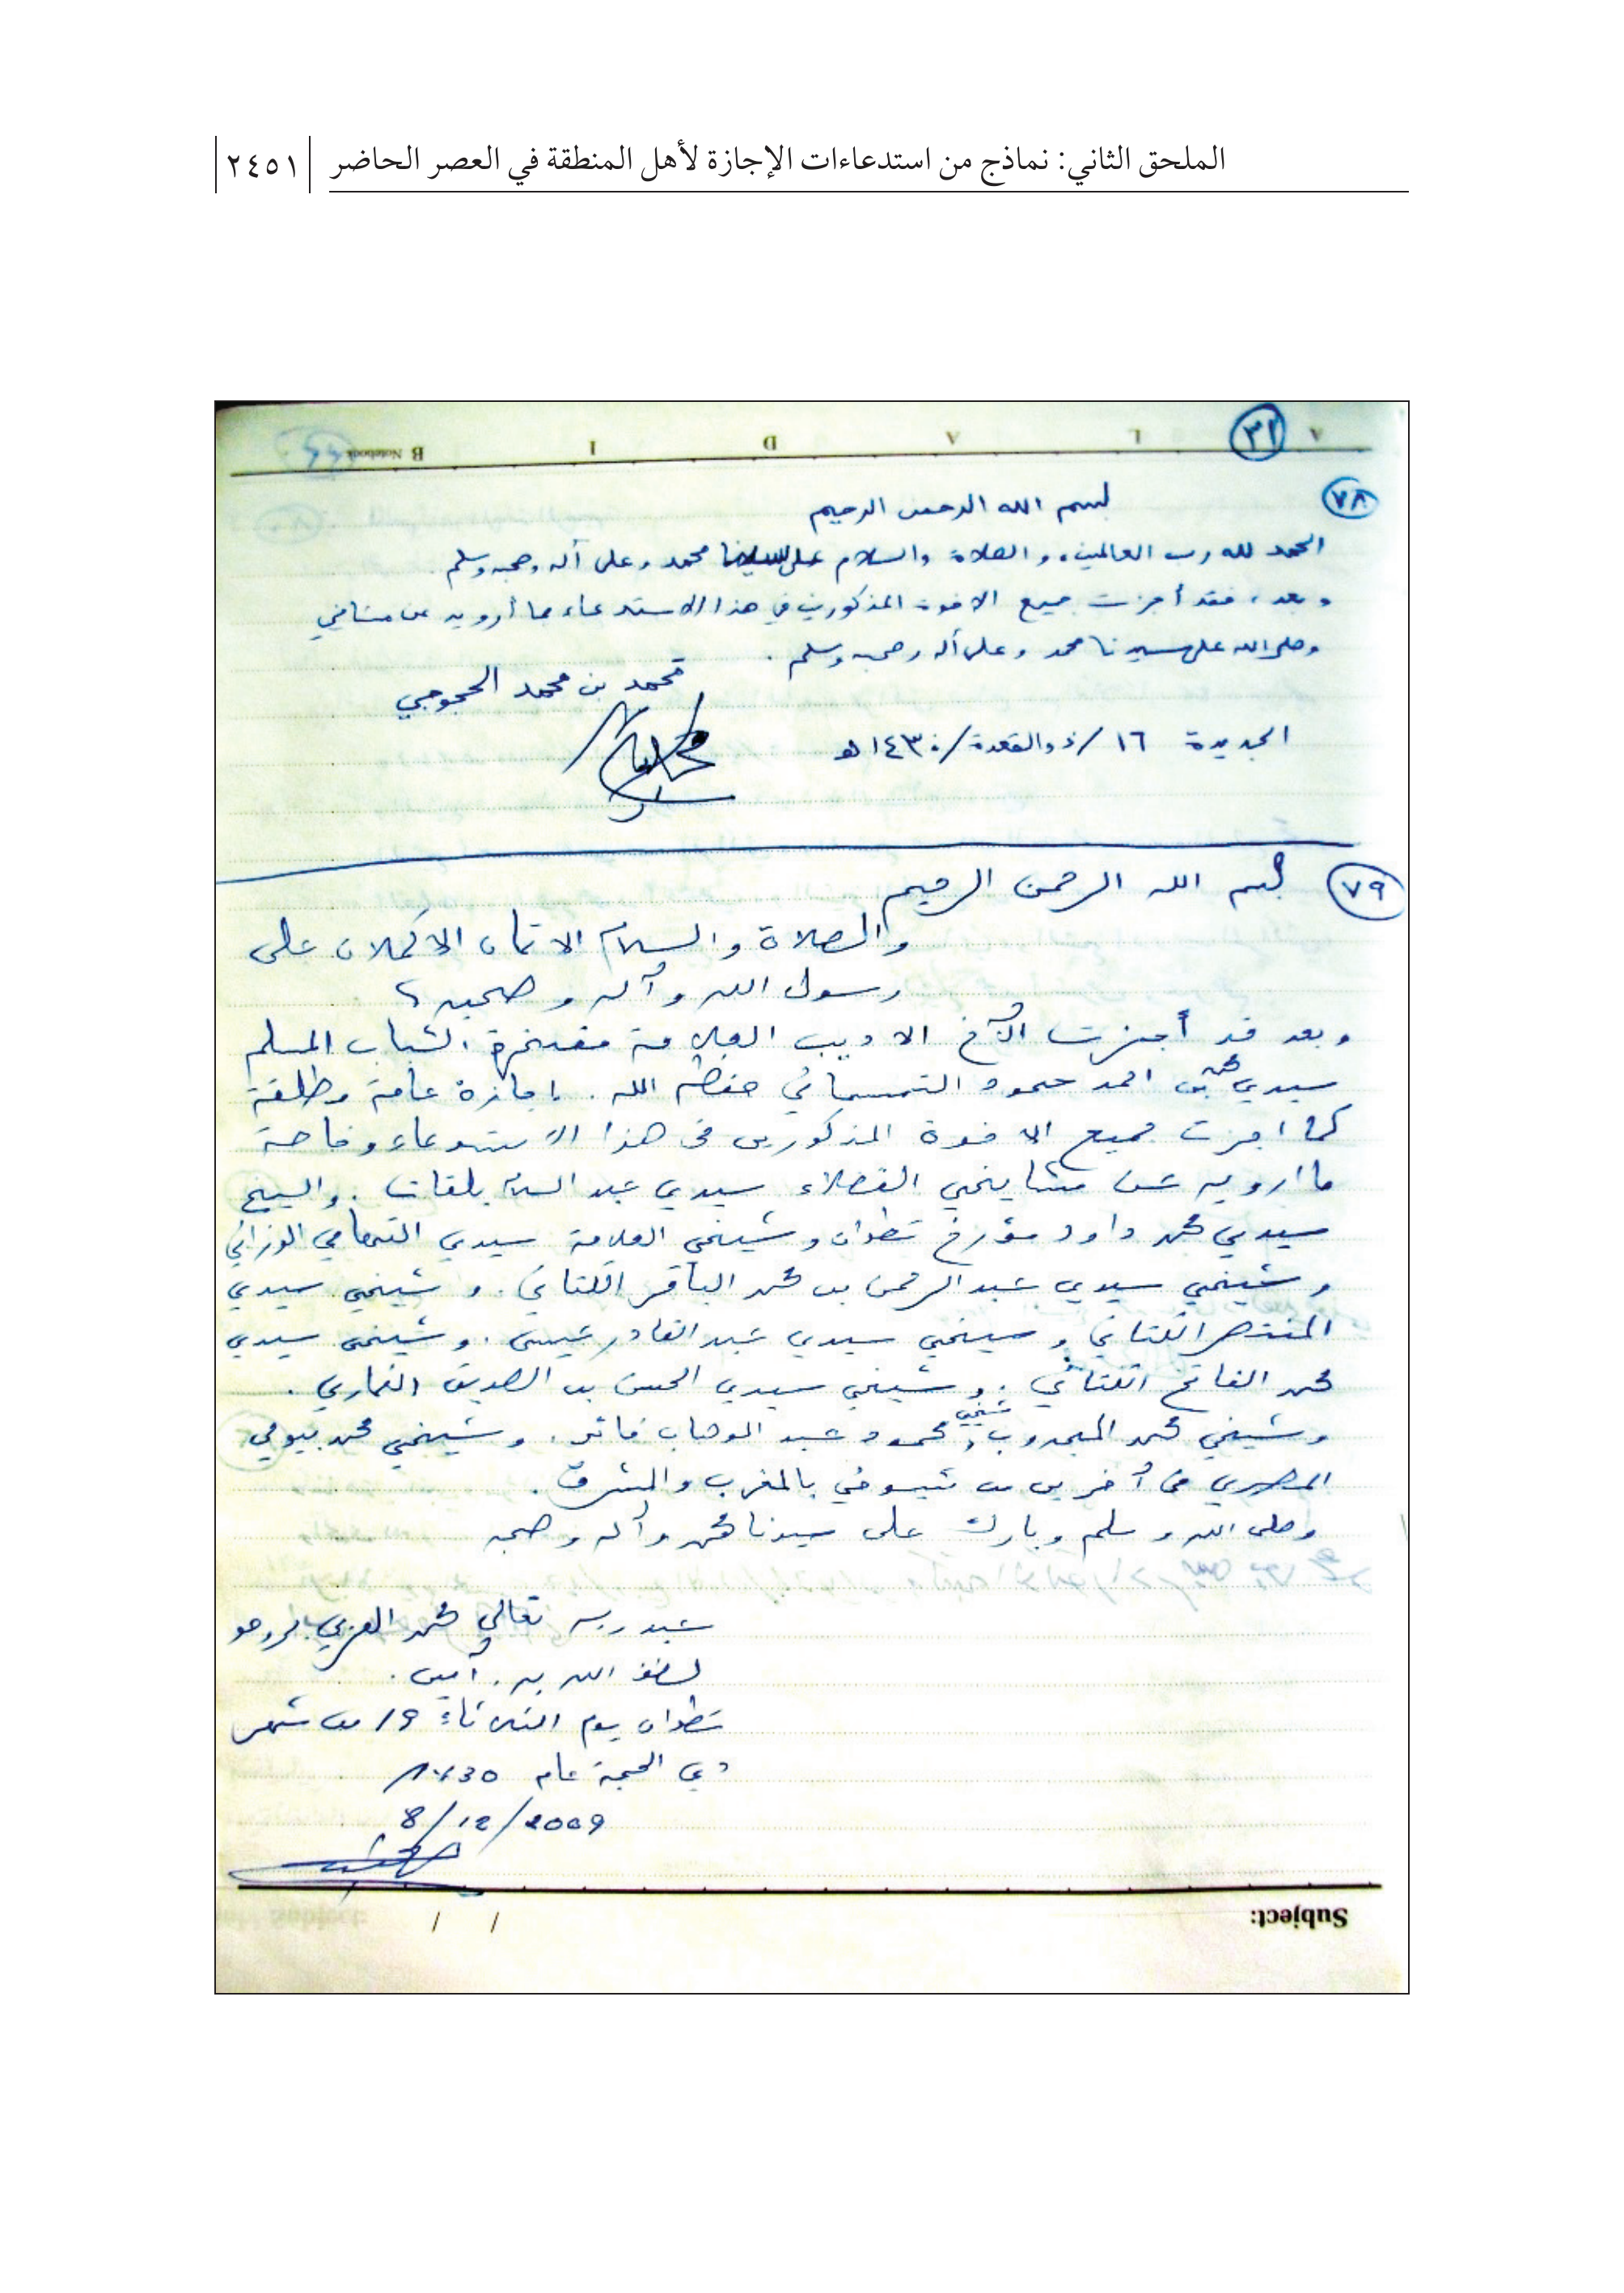 الملحق الثاني: نماذج من استدعاءات الإجازة لأهل المنطقة في العصر الحاضر ٢٤٥١
B Notebook I D A L A ٣١
٧٨
بسم الله الرحمن الرحيم
الحمد لله رب العالمين، والصلاة والسلام على سيدنا محمد وعلى آله وصحبه وسلم
وبعد، فقد أجزت جميع الاخوة المذكورين في هذا الاستدعاء بما أرويه عن مشائخي
وصلى الله على سيدنا محمد وعلى آله وصحبه وسلم .
محمد بن محمد الحجوجي
الجديدة ١٦/ذوالقعدة/١٤٣٠هـ
٧٩
بسم الله الرحمن الرحيم
والصلاة والسلام الاتمان الاكملان على
رسول الله وآله وصحبه
وبعد قد أجزت الأخ الاديب العلامة مفخرة الشباب المسلم
سيدي محمد بن احمد حمود التمسماني حفظه الله . اجازة عامة مطلقة
كما اجزت جميع الاخوة المذكورين في هذا الاستدعاء وخاصة
ما ارويه عن مشايخي الفضلاء سيدي عبد السلام بلقات . والشيخ
سيدي محمد داود مؤرخ تطوان وشيخي العلامة سيدي التهامي الوزاني
وشيخي سيدي عبد الرحمن بن محمد الباقر الكتاني . وشيخي سيدي
المنتصر الكتاني وشيخي سيدي عبد القادر عيسى . وشيخي سيدي
محمد الفاتح الكتاني . وشيخي سيدي الحسن بن الصديق الغماري .
وشيخي محمد المجدوب، وشيخي محمود عبد الوهاب فائد . وشيخي محمد بيومي
المصري في آخرين من شيوخي بالمغرب والمشرق .
وصلى الله وسلم وبارك على سيدنا محمد وآله وصحبه
عبد ربه تعالى محمد العربي
لطف الله به . آمين .
تطوان يوم الثلاثاء 19 من شهر
ذي الحجة عام 1430
8/12/2009
Subject: